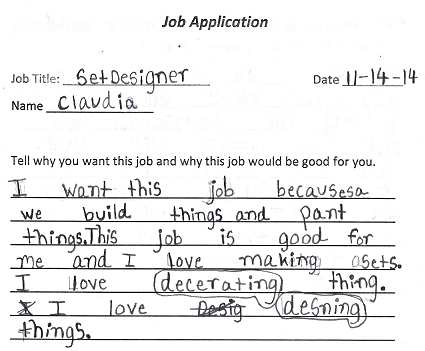 Job Application
Job Title: Set Designer Date 11-14-14
Name Claudia
Tell why you want this job and why this job would be good for you.
I want this job becausesa
we build things and pant
things. This job is good for
me and I love making sets.
I love decerating thing.
I love Desig desning
things.